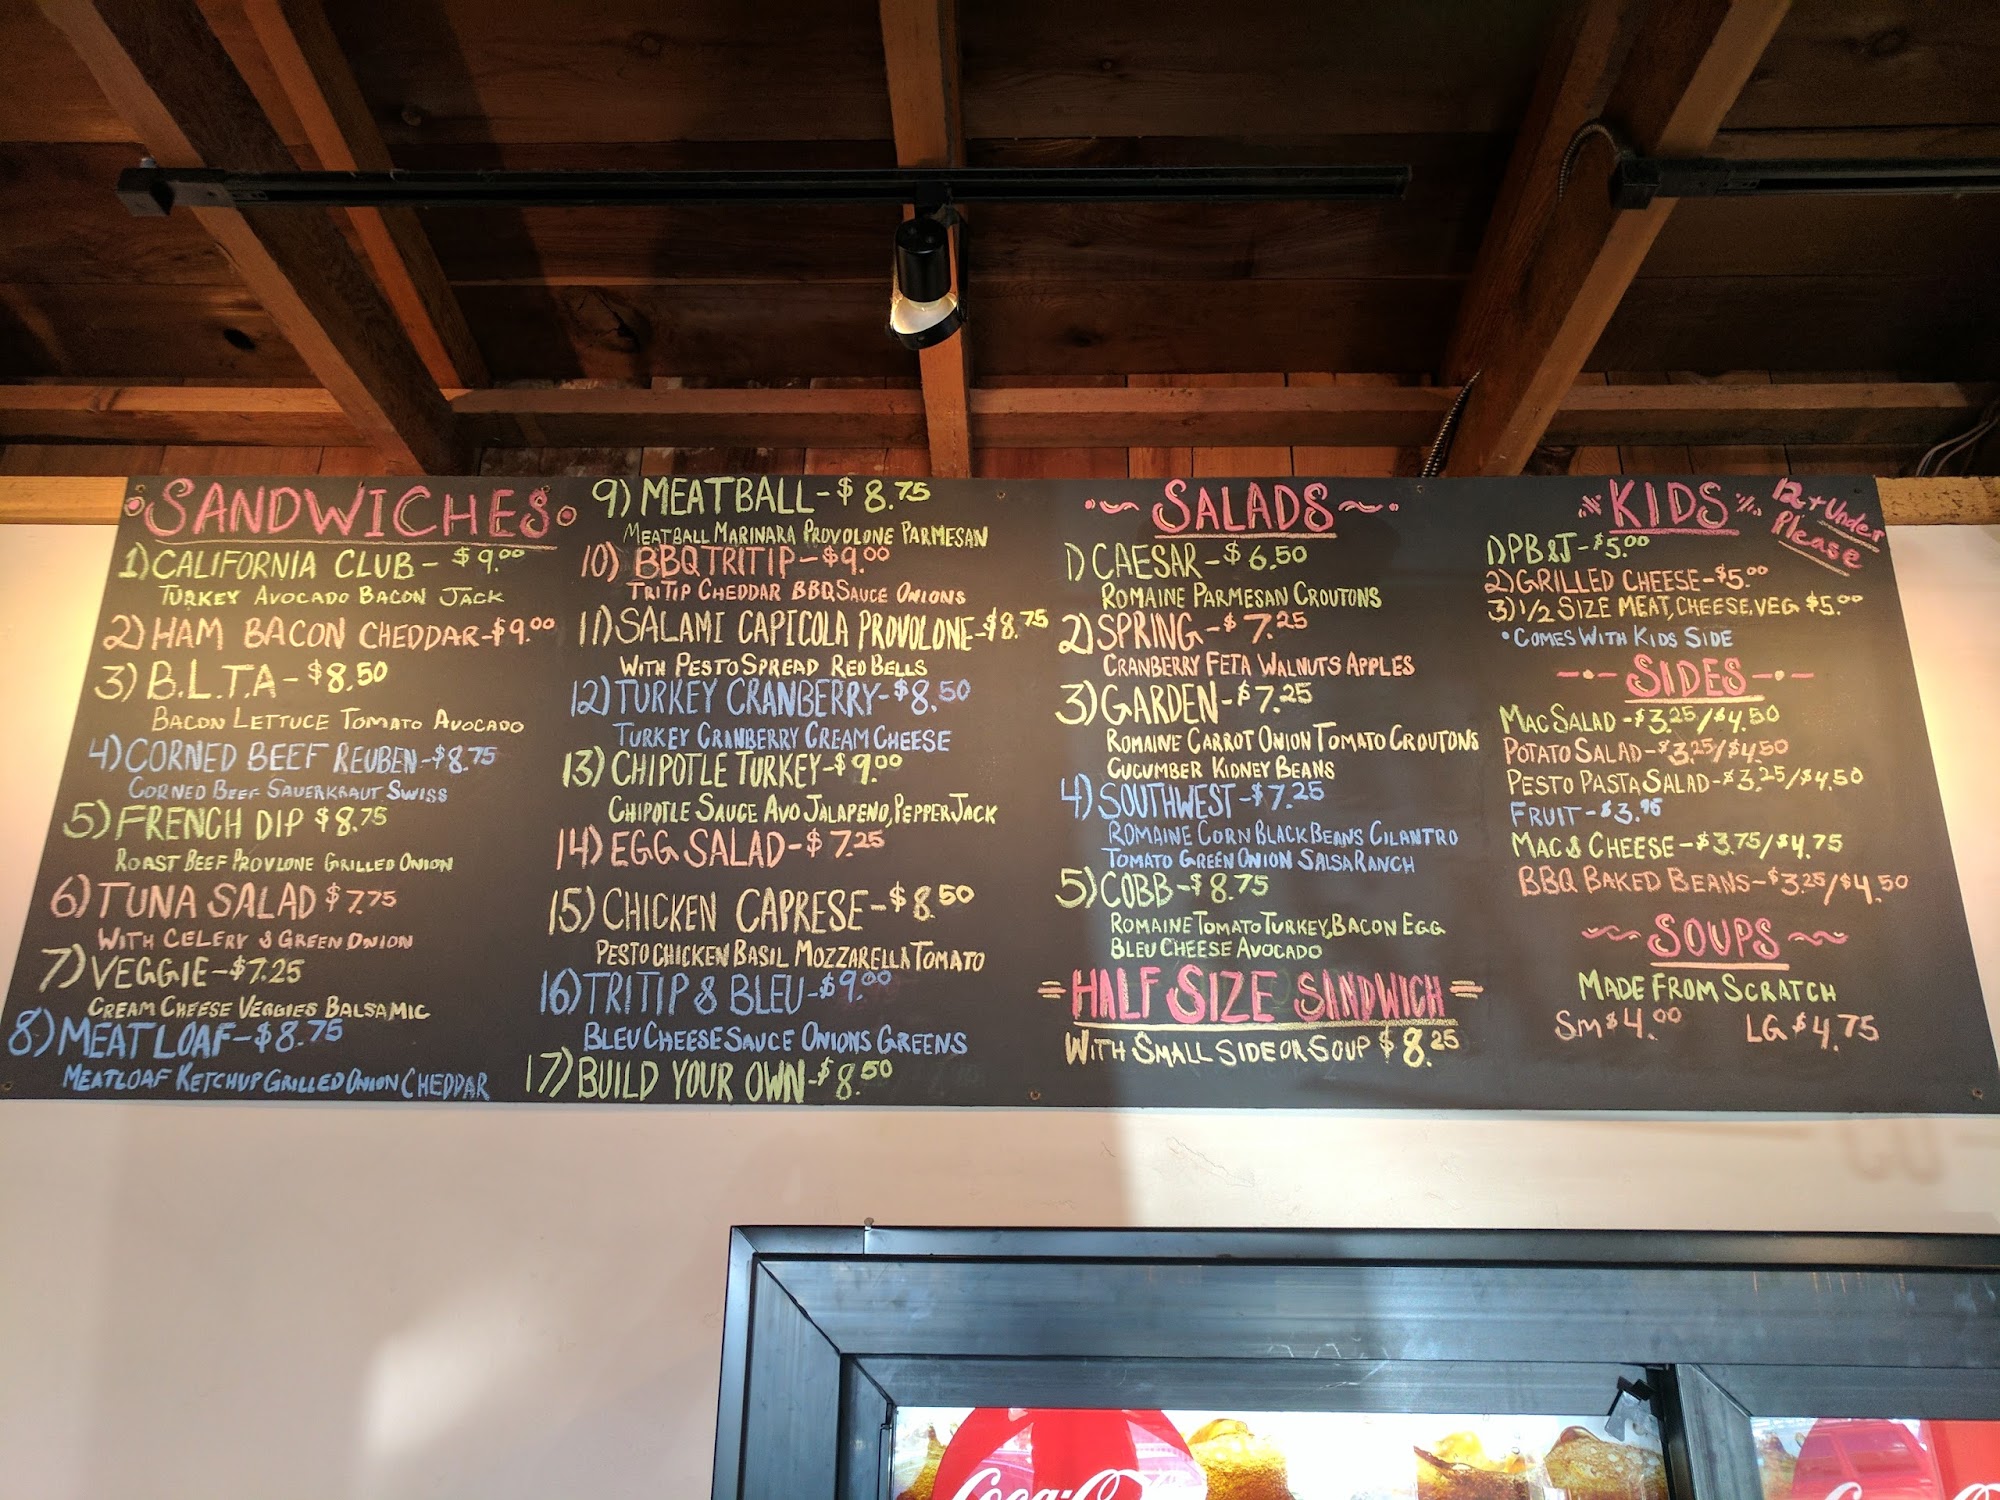 SANDWICHES
1) CALIFORNIA CLUB - $9.00
TURKEY AVOCADO BACON JACK
2) HAM BACON CHEDDAR - $9.00
3) B.L.T.A - $8.50
BACON LETTUCE TOMATO AVOCADO
4) CORNED BEEF REUBEN - $8.75
CORNED BEEF SAUERKRAUT SWISS
5) FRENCH DIP $8.75
ROAST BEEF PROVLONE GRILLED ONION
6) TUNA SALAD $7.75
WITH CELERY & GREEN ONION
7) VEGGIE - $7.25
CREAM CHEESE VEGGIES BALSAMIC
8) MEATLOAF - $8.75
MEATLOAF KETCHUP GRILLED ONION CHEDDAR
9) MEATBALL - $8.75
MEATBALL MARINARA PROVOLONE PARMESAN
10) BBQ TRITIP - $9.00
TRITIP CHEDDAR BBQ SAUCE ONIONS
11) SALAMI CAPICOLA PROVOLONE - $8.75
WITH PESTO SPREAD RED BELLS
12) TURKEY CRANBERRY - $8.50
TURKEY CRANBERRY CREAM CHEESE
13) CHIPOTLE TURKEY - $9.00
CHIPOTLE SAUCE AVO JALAPENO, PEPPER JACK
14) EGG SALAD - $7.25
15) CHICKEN CAPRESE - $8.50
PESTO CHICKEN BASIL MOZZARELLA TOMATO
16) TRITIP & BLEU - $9.00
BLEU CHEESE SAUCE ONIONS GREENS
17) BUILD YOUR OWN - $8.50
SALADS
1) CAESAR - $6.50
ROMAINE PARMESAN CROUTONS
2) SPRING - $7.25
CRANBERRY FETA WALNUTS APPLES
3) GARDEN - $7.25
ROMAINE CARROT ONION TOMATO CROUTONS
CUCUMBER KIDNEY BEANS
4) SOUTHWEST - $7.25
ROMAINE CORN BLACK BEANS CILANTRO
TOMATO GREEN ONION SALSA RANCH
5) COBB - $8.75
ROMAINE TOMATO TURKEY, BACON EGG
BLEU CHEESE AVOCADO
HALF SIZE SANDWICH
WITH SMALL SIDE OR SOUP $8.25
KIDS
12 + Under
Please
1) PB & J - $5.00
2) GRILLED CHEESE - $5.00
3) 1/2 SIZE MEAT, CHEESE, VEG $5.00
• COMES WITH KIDS SIDE
SIDES
MAC SALAD - $3.25/$4.50
POTATO SALAD - $3.25/$4.50
PESTO PASTA SALAD - $3.25/$4.50
FRUIT - $3.95
MAC & CHEESE - $3.75/$4.75
BBQ BAKED BEANS - $3.25/$4.50
SOUPS
MADE FROM SCRATCH
SM $4.00 LG $4.75
Coca-Co